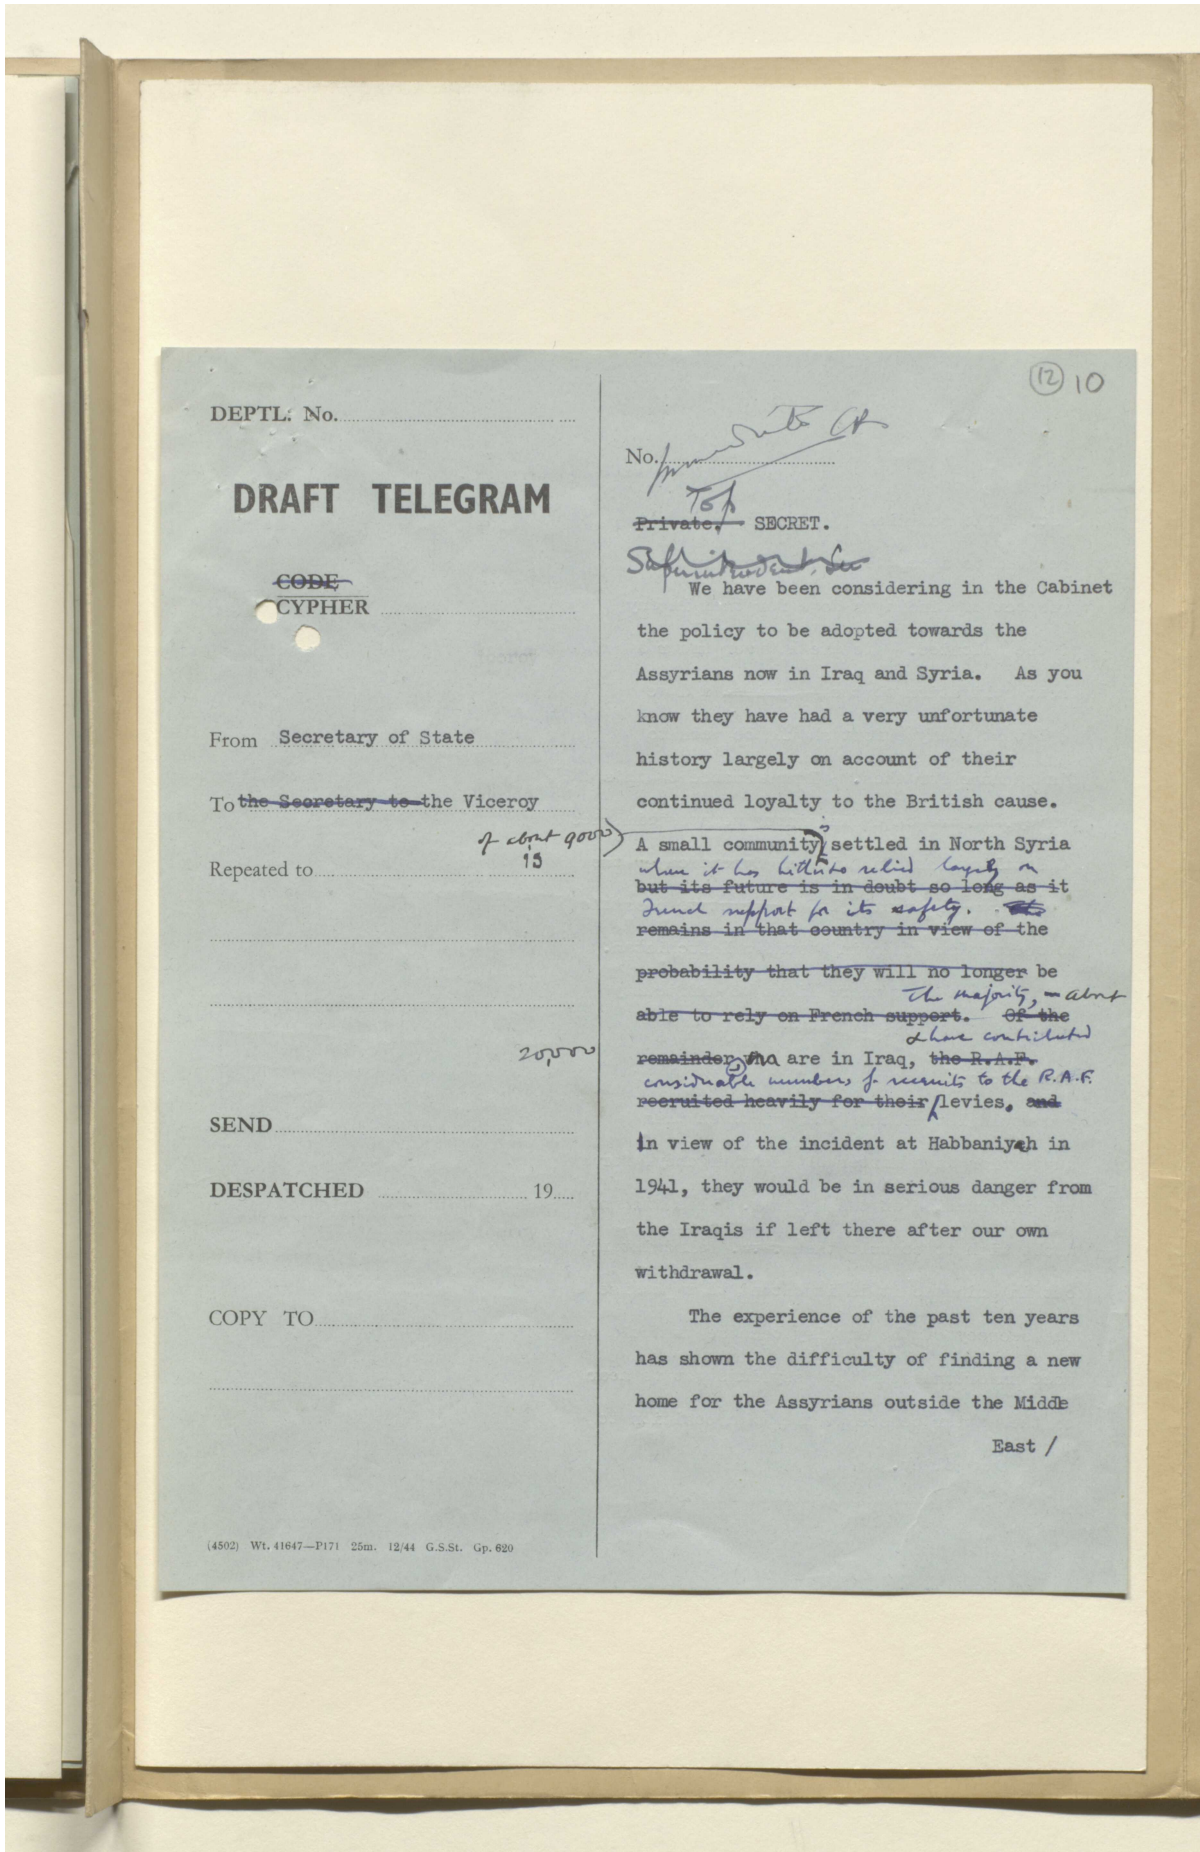 12 10
DEPTL. No.
DRAFT TELEGRAM
CODE
CYPHER
From Secretary of State
To the Secretary to the Viceroy
of about 9000
Repeated to 15
20,000
SEND
DESPATCHED 19
COPY TO
(4502) Wt. 41647—P171 25m. 12/44 G.S.St. Gp. 620
No.
Top
Private. SECRET.
We have been considering in the Cabinet
the policy to be adopted towards the
Assyrians now in Iraq and Syria. As you
know they have had a very unfortunate
history largely on account of their
continued loyalty to the British cause.
is
A small community settled in North Syria
where it has hitherto relied largely on
but its future is in doubt so long as it
French support for its safety. The
remains in that country in view of the
probability that they will no longer be
The majority, – about
able to rely on French support. Of the
& have contributed
remainder who are in Iraq, the R.A.F.
considerable numbers of recruits to the R.A.F.
recruited heavily for their levies. and
In view of the incident at Habbaniyah in
1941, they would be in serious danger from
the Iraqis if left there after our own
withdrawal.
The experience of the past ten years
has shown the difficulty of finding a new
home for the Assyrians outside the Middle
East /